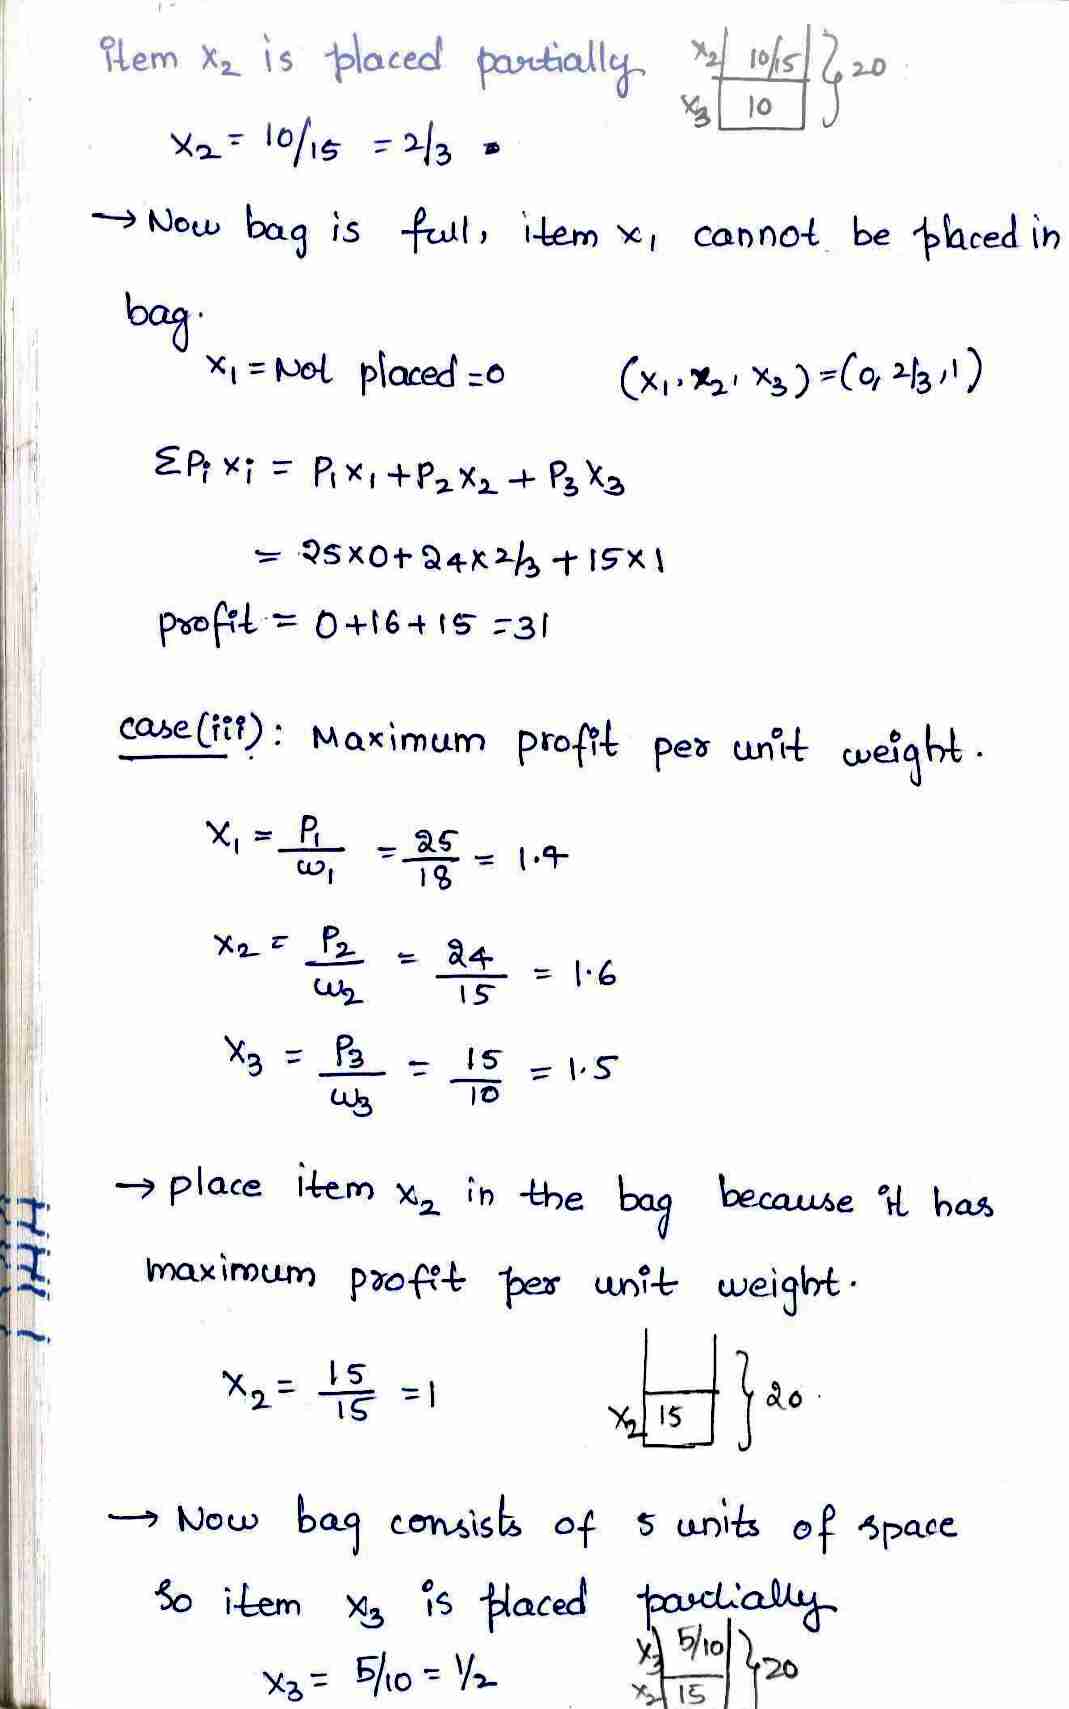 item x₂ is placed partially x₂ 10/15 } 20
x₃ 10
x₂ = 10/15 = 2/3
→ Now bag is full, item x₁ cannot be placed in
bag.
x₁ = Not placed = 0 (x₁, x₂, x₃) = (0, 2/3, 1)
ΣPᵢ xᵢ = P₁x₁ + P₂x₂ + P₃x₃
= 25×0 + 24×2/3 + 15×1
profit = 0+16+15 = 31
case(iii): Maximum profit per unit weight.
x₁ = P₁/ω₁ = 25/18 = 1.4
x₂ = P₂/ω₂ = 24/15 = 1.6
x₃ = P₃/ω₃ = 15/10 = 1.5
→ place item x₂ in the bag because it has
maximum profit per unit weight.
x₂ = 15/15 = 1 x₂ 15 } 20
→ Now bag consists of 5 units of space
so item x₃ is placed partially
x₃ = 5/10 = 1/2 x₃ 5/10 } 20
x₂ 15